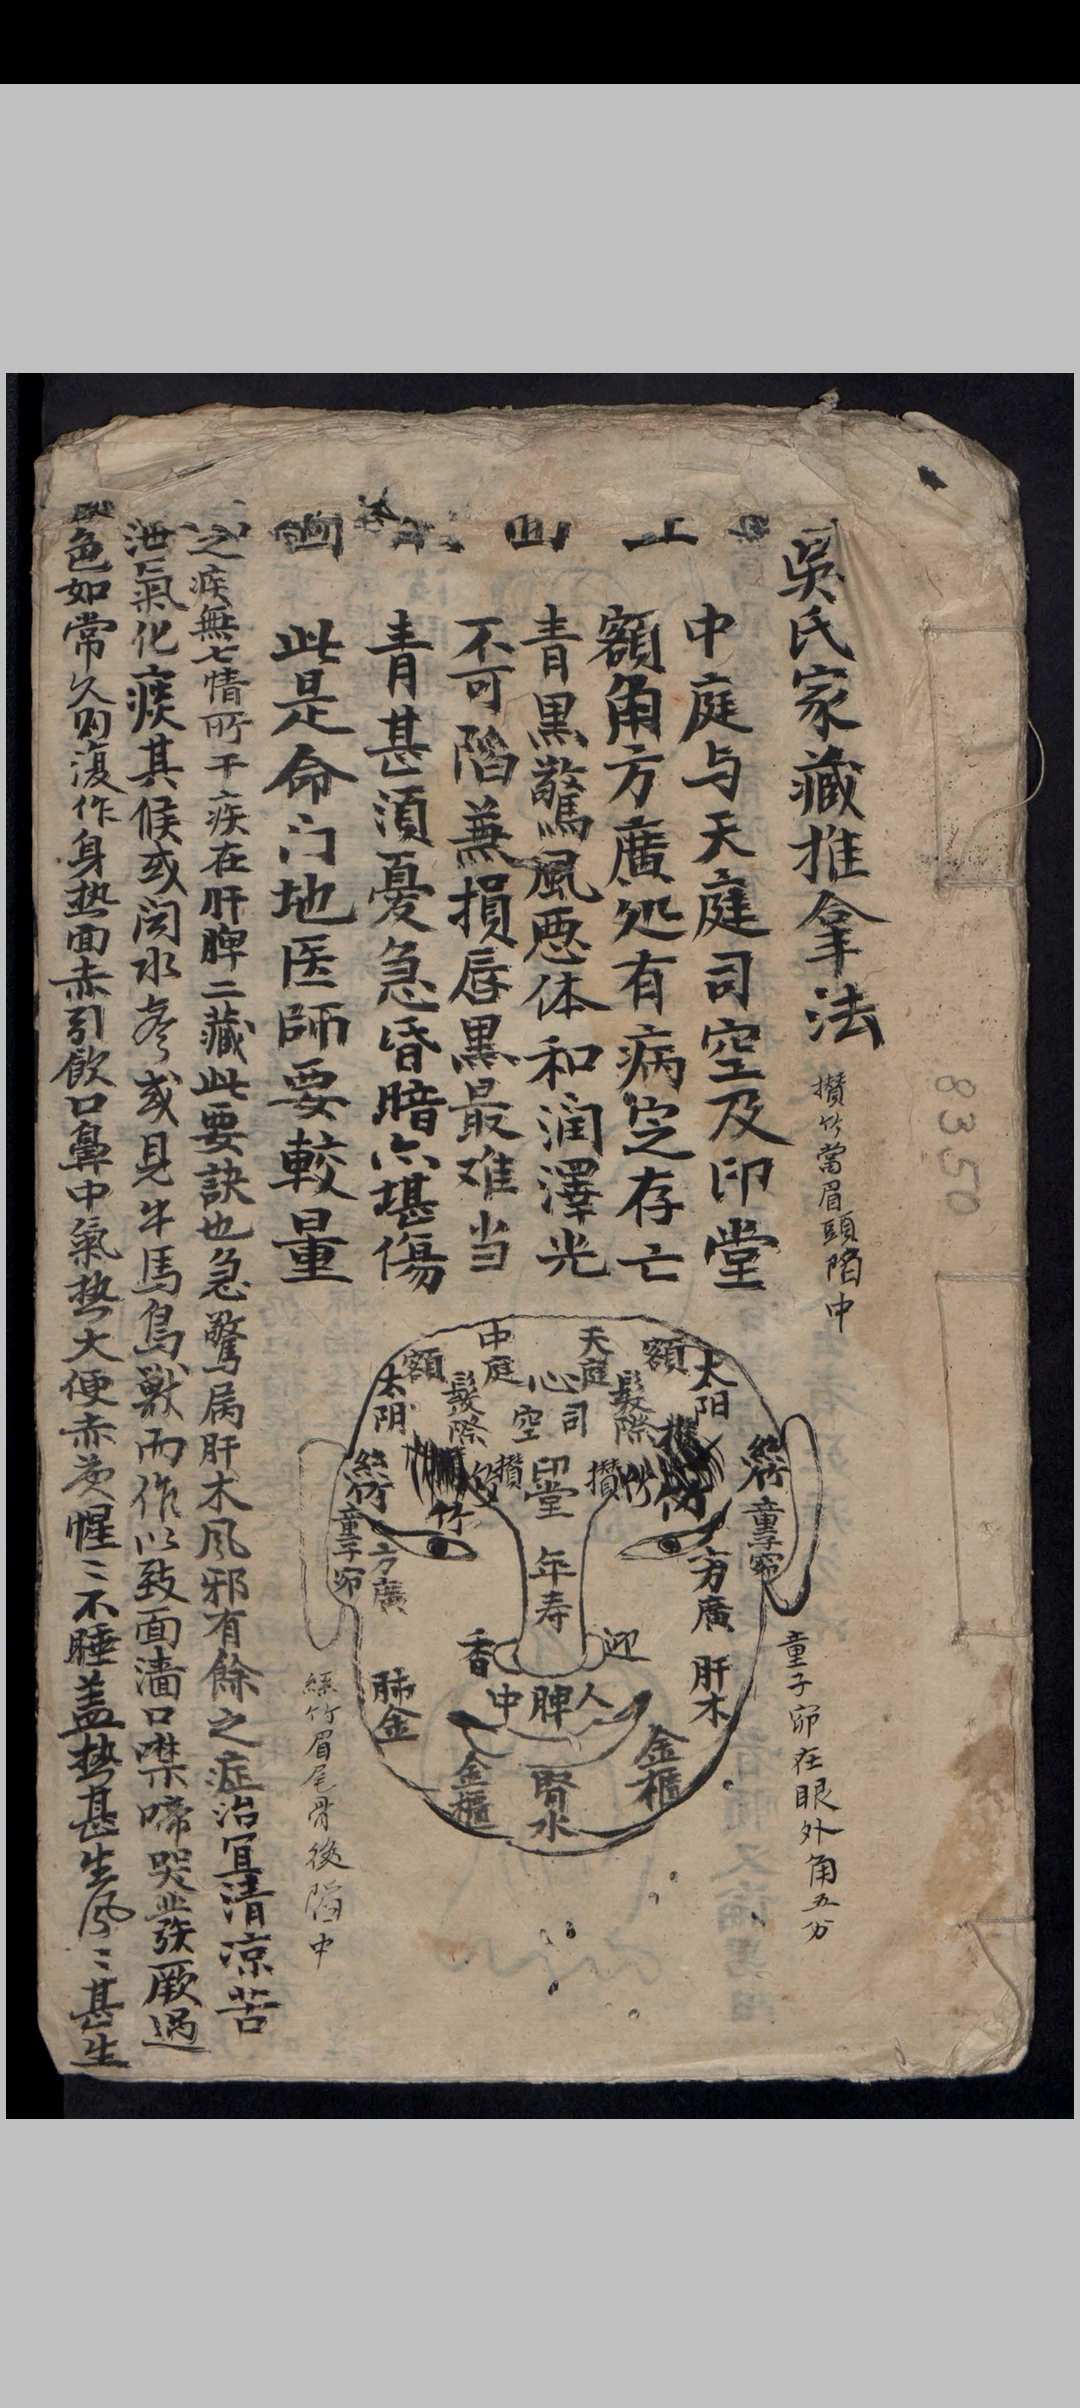 吳氏家藏推拿法
攅竹當眉頭陷中
上面
中庭与天庭司空及印堂
額角方廣処有病定存亡
青黒驚風悪体和润澤光
不可陷兼損唇黒最难当
青甚湏憂急昏暗亦堪傷
此是命门地医師要較量
之疾無七情所干疾在肝脾二藏此要訣也急驚属肝木风邪有餘之症治宜清凉苦
泄氣化痰其候或闻水声或見牛馬鳥獣而作以致面濇口噤啼哭並發厥過
色如常久则復作身热面赤引飲口鼻中氣热大便赤黄惺〻不睡盖热甚生风〻甚生
中庭
天庭
額
額
太阳
太阴
髮際
髮際
心
司
空
印堂
攅竹
攅
竹
絲竹
絲竹
童子窌
童子窌
方廣
方廣
年寿
迎
香
肝木
肺金
人
脾
中
金櫃
金櫃
腎水
童子窌在眼外角五分
絲竹眉尾骨後陷中
8350